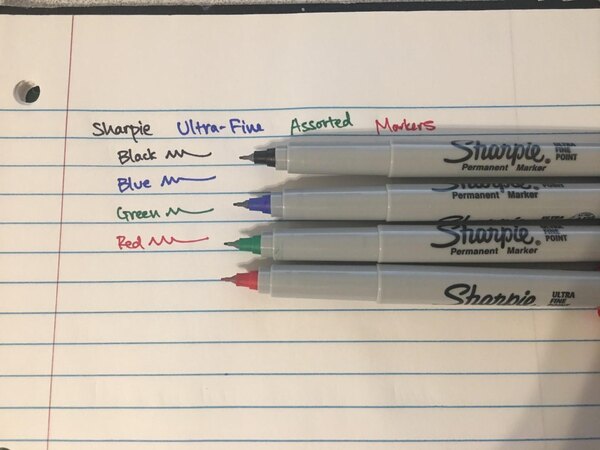 Sharpie Ultra-Fine Assorted Markers
Black
Blue
Green
Red
Sharpie® ULTRA FINE POINT
Permanent Marker
Sharpie
Permanent Marker
Sharpie
Sharpie® ULTRA FINE POINT
Permanent Marker
Sharpie ULTRA FINE